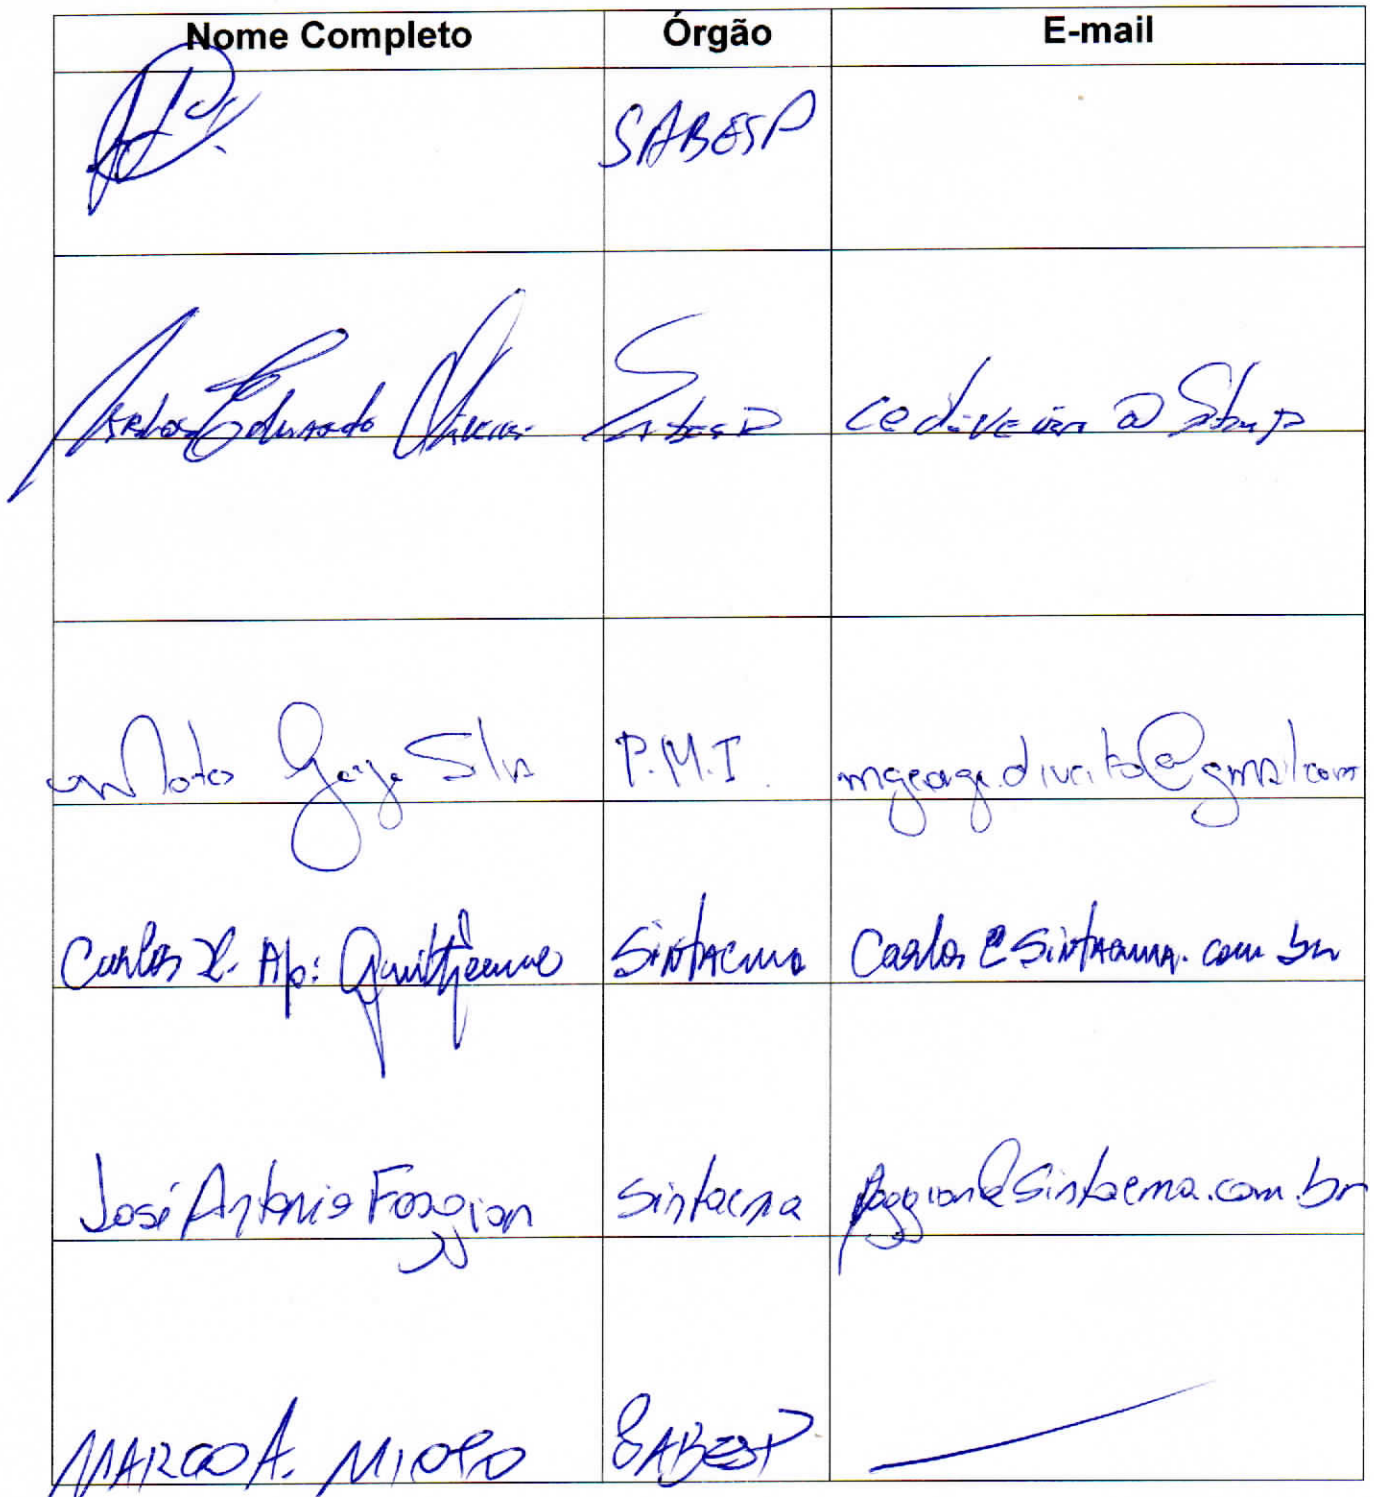 Nome Completo Órgão E-mail
SABESP
Carlos Eduardo Oliveira Sabesp @
George Silva P.M.I. mgeorge.direito@gmail.com
Carlos Ap: Sintaema Carlos@Sintaema.com.br
José Antonio Faggian Sintaema faggian@Sintaema.com.br
MARCO A. MIOTO SABESP